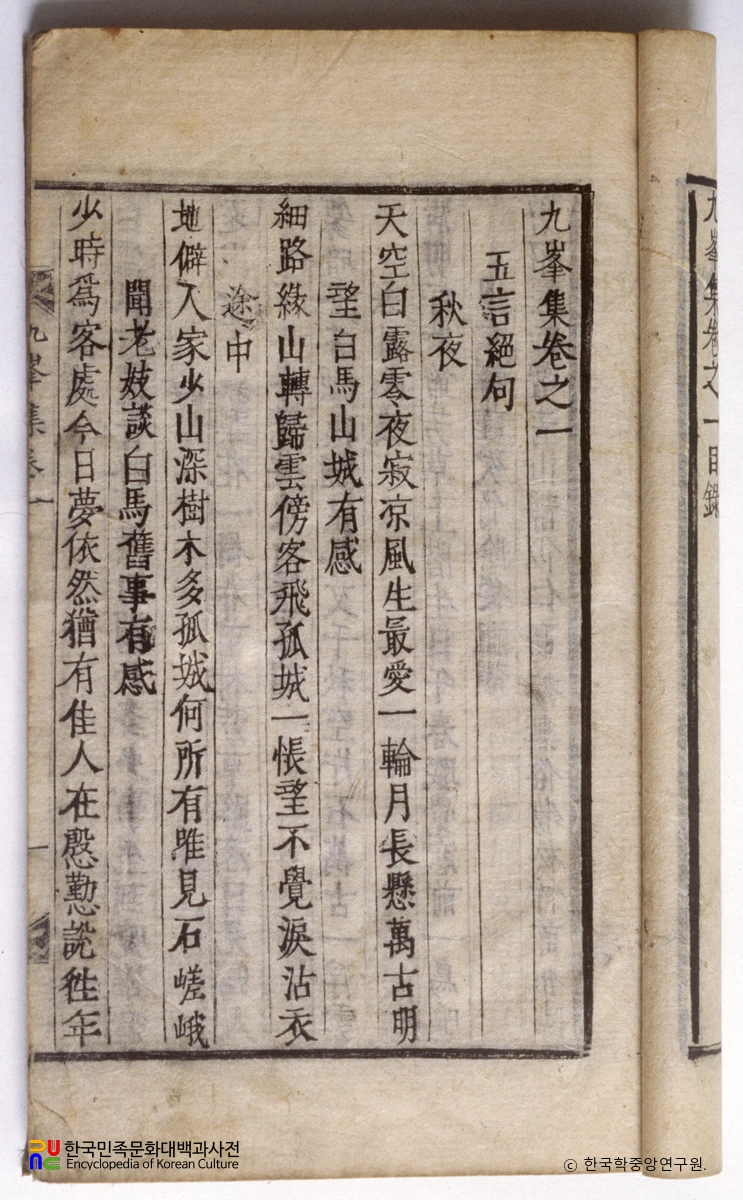 九峯集卷之一目錄
九峯集卷之一
五言絕句
秋夜
天空白露零夜寂凉風生最愛一輪月長懸萬古明
望白馬山城有感
細路緣山轉歸雲傍客飛孤城一悵望不覺淚沾衣
途中
地僻人家少山深樹木多孤城何所有唯見石嵯峨
聞老妓談白馬舊事有感
少時爲客處今日夢依然猶有佳人在慇懃說徃年
九峯集卷一
한국민족문화대백과사전
Encyclopedia of Korean Culture
© 한국학중앙연구원.